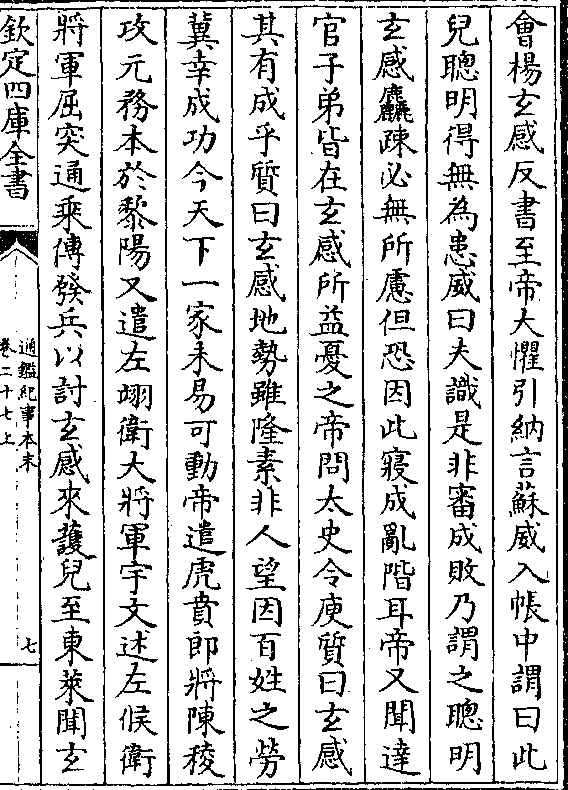 會楊玄感反書至帝大懼引納言蘇威入帳中謂曰此
兒聰明得無為患威曰夫識是非審成敗乃謂之聰明
玄感麤疎必無所慮但恐因此寖成亂階耳帝又聞達
官子弟皆在玄感所益憂之帝問太史令庾質曰玄感
其有成乎質曰玄感地勢雖隆素非人望因百姓之勞
冀幸成功今天下一家未易可動帝遣虎賁郎將陳稜
攻元務本於黎陽又遣左翊衛大將軍宇文述左候衛
將軍屈突通乘傳發兵以討玄感來護兒至東萊聞玄
欽定四庫全書
通鑑紀事本末
卷二十七上
七